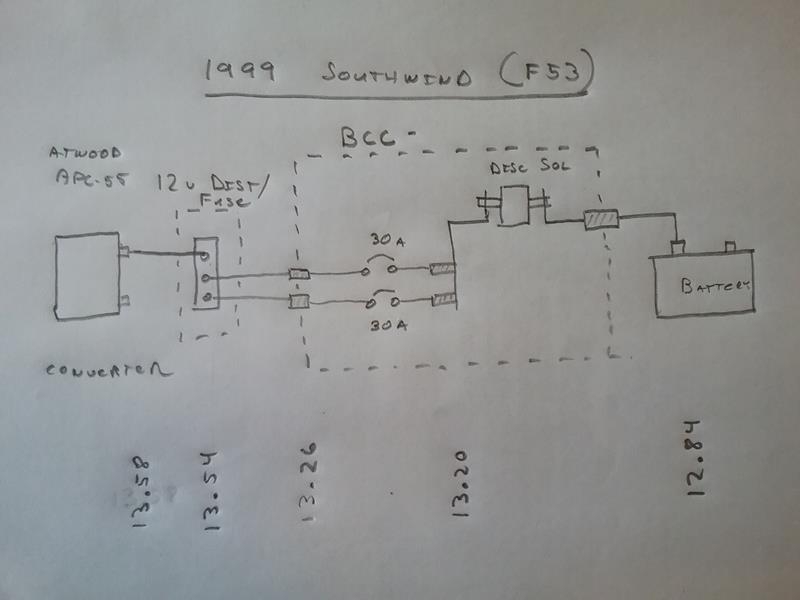 1999 SOUTHWIND (F53)
BCC-
ATWOOD
APC-55
12v DIST/
FUSE
DISC SOL
30A
30A
BATTERY
CONVERTER
13.58
13.54
13.26
13.20
12.84